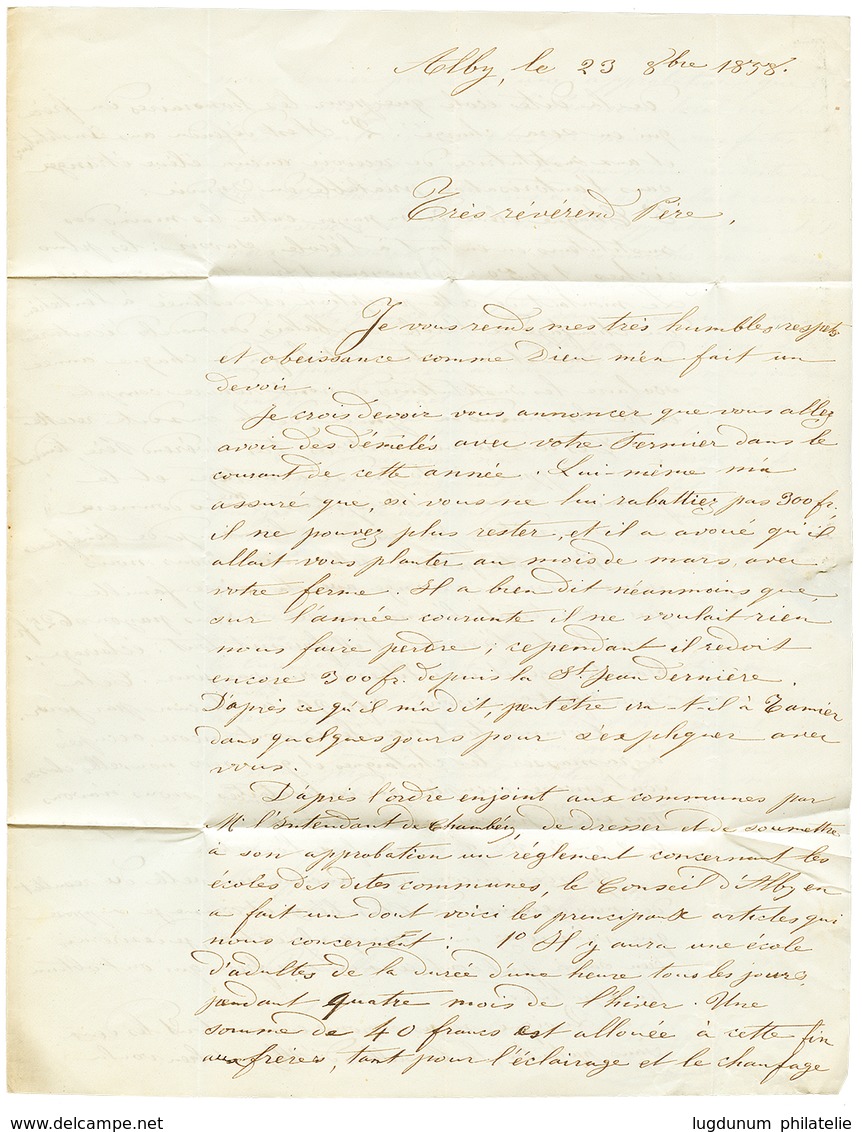 Alby, le 23 8bre 1858.
Très révérend Père,
Je vous rends mes très humbles respets
et obeissance comme Dieu m'en fait un
devoir.
Je crois devoir vous annoncer que vous allez
avoir des démélés avec votre Fermier dans le
courant de cette année. Lui-même m'a
assuré que, si vous ne lui rabattiez pas 300 fr.,
il ne pouvez plus rester, et il a avoué qu'il
allait vous planter au mois de mars, avec
votre ferme. Il a bien dit néanmoins que,
sur l'année courante il ne voulait rien
nous faire perdre; cependant il redoit
encore 300 fr. depuis la St Jean dernière.
D'après ce qu'il m'a dit, peut être ira-t-il à Tamier
dans quelques jours pour s'expliquer avec
vous.
D'après l'ordre enjoint aux communes par
Mr l'Intendant de Chambéry, de dresser et de soumettre
à son approbation un réglement concernant les
écoles des dites communes, le Conseil d'Alby en
a fait un dont voici les principaux articles qui
nous concernent: 1o Il y aura une école
d'adultes de la durée d'une heure tous les jours,
pendant quatre mois de l'hiver. Une
somme de 40 francs est allouée à cette fin
aux frères, tant pour l'éclairage et le chaufage
lugdunum philatelie